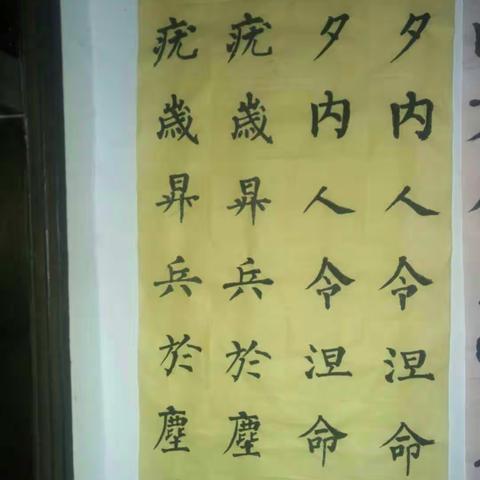 夕内人令涅命
夕内人令涅命
疣歲昇兵於塵
疣歲昇兵於塵